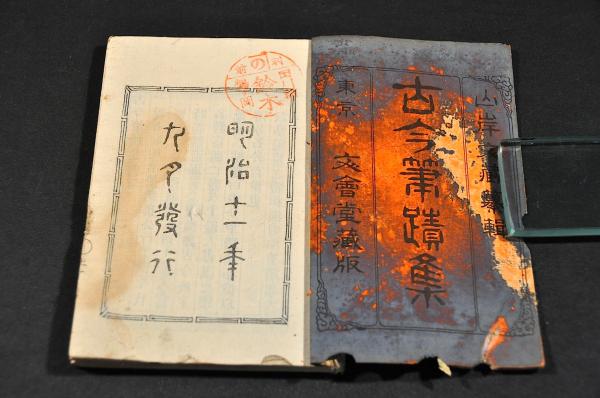 山岸 輯
古今筆蹟集
東京 文會堂藏版
明治十一年
九月發行
の
鈴木